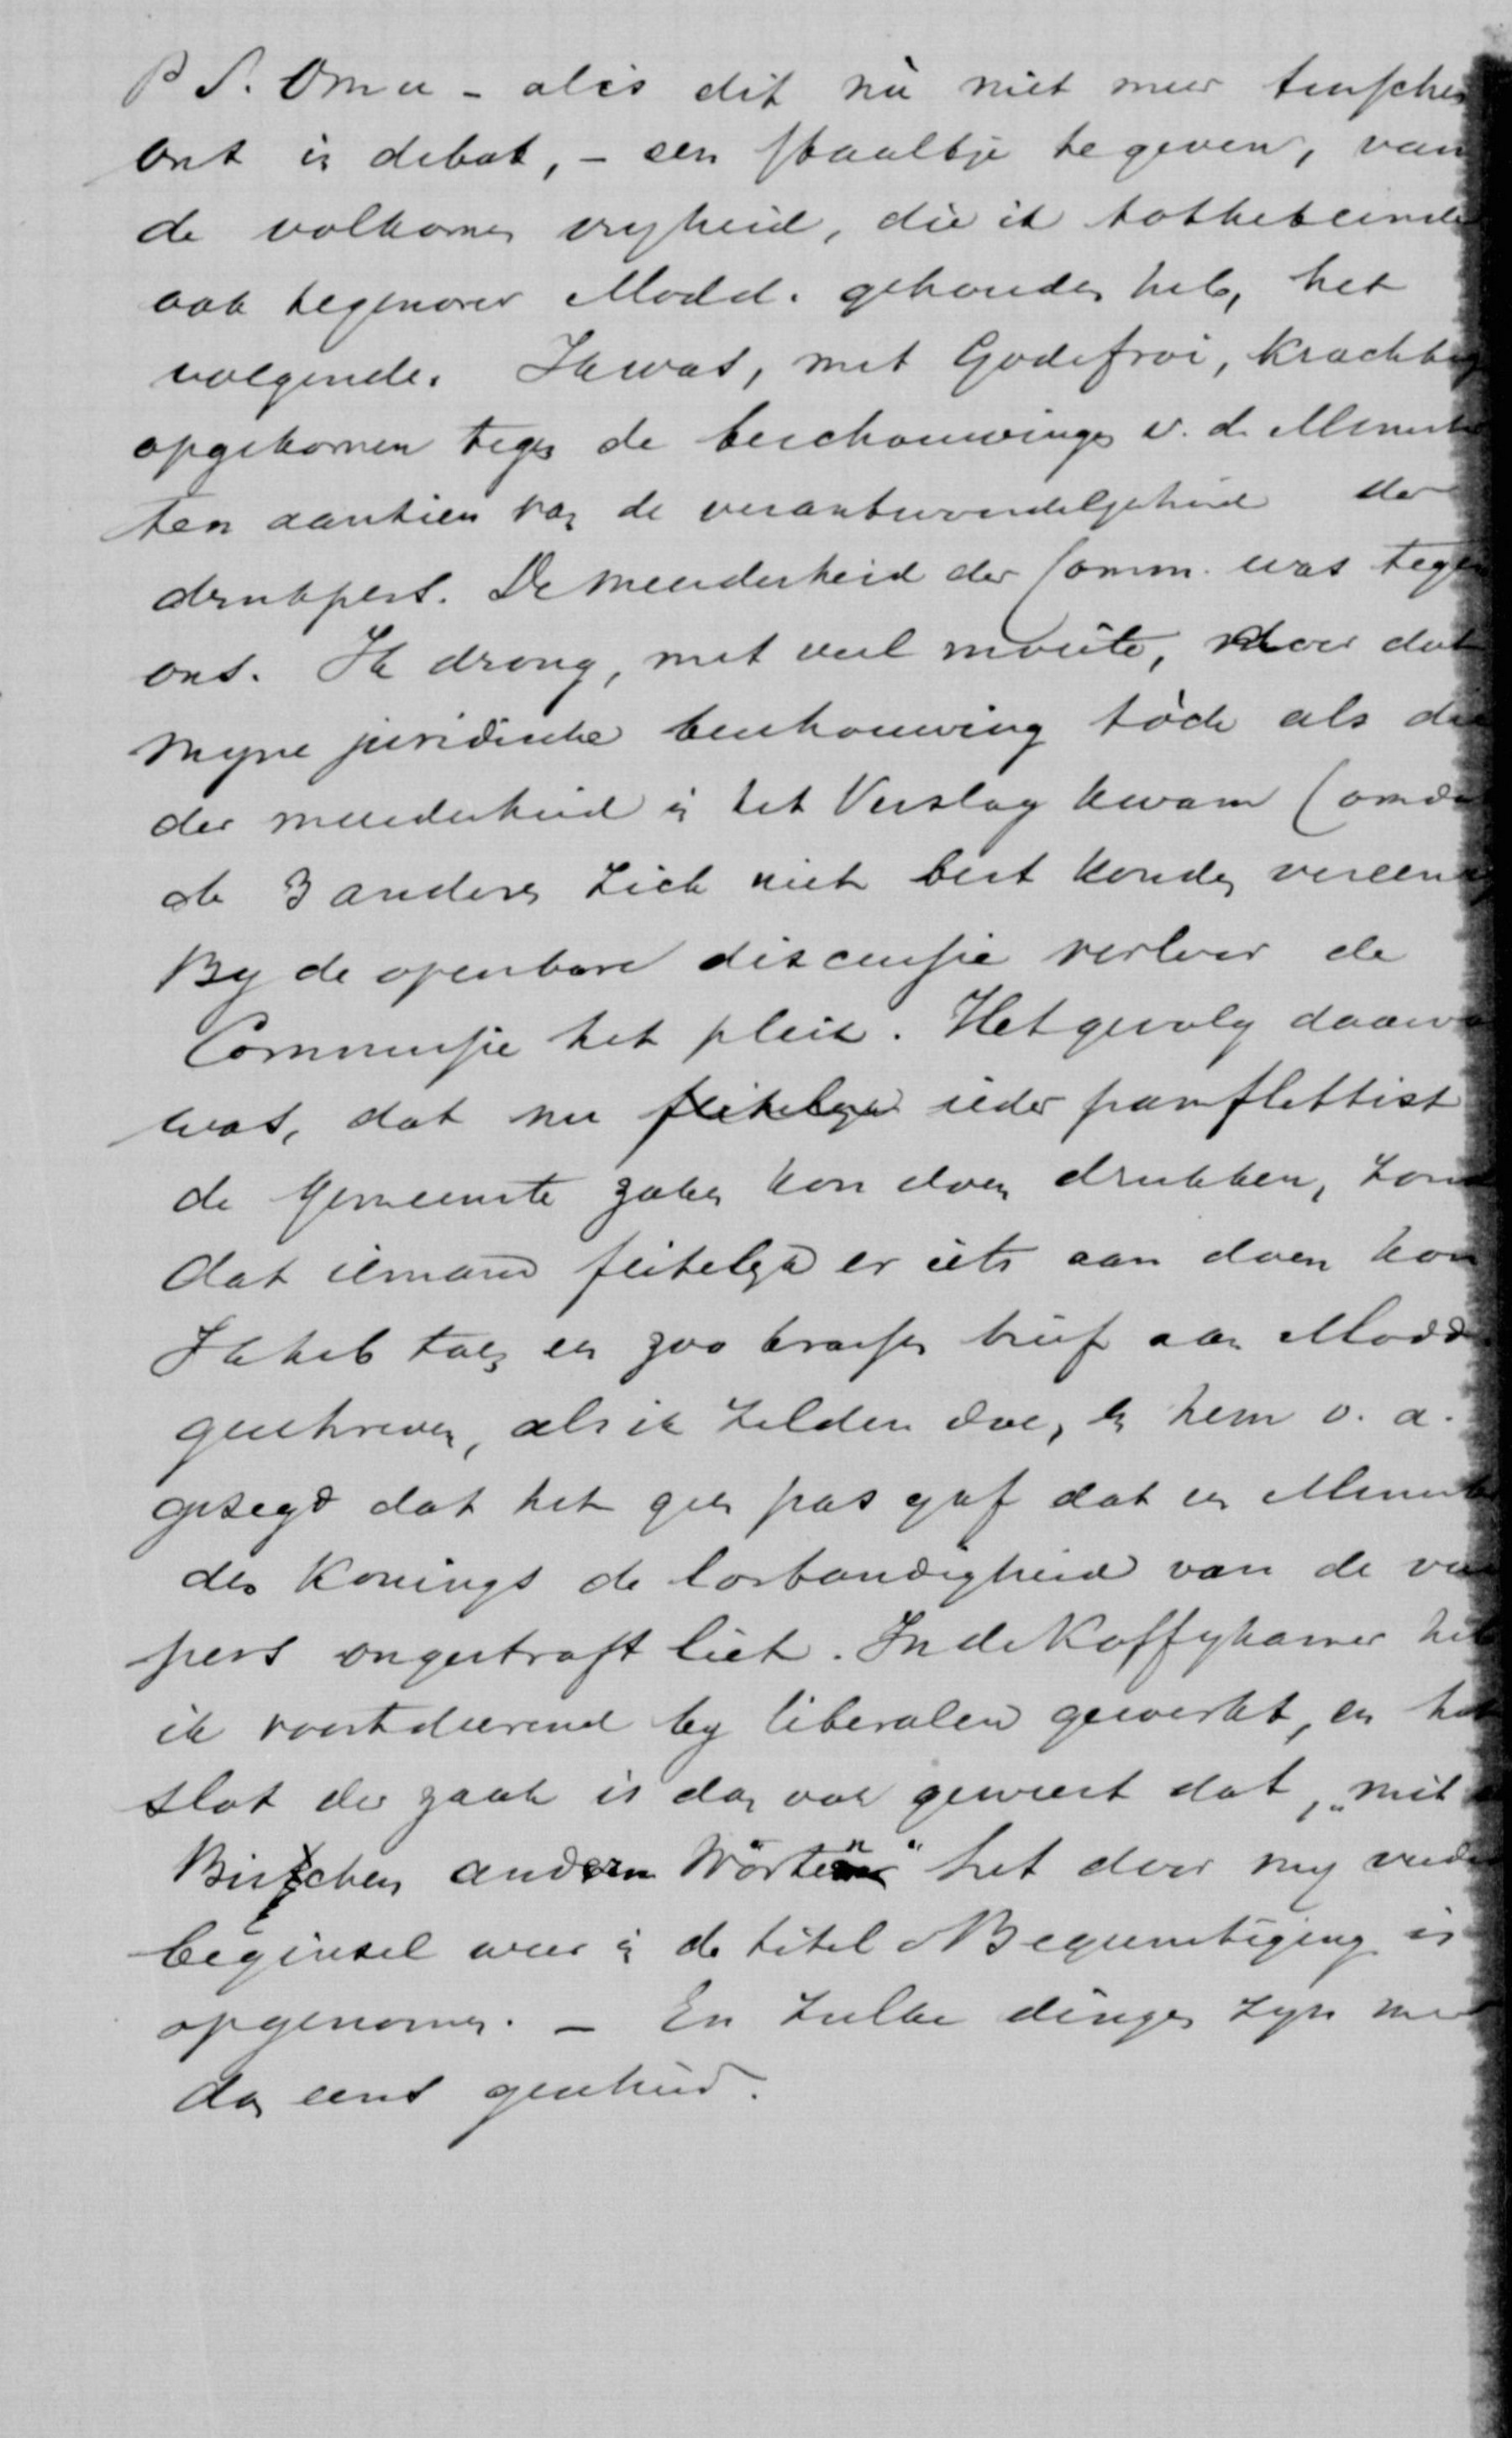 P S. Om u - al is dit nù niet meer tusschen
ons in debat, - een staaltje te geven, van
de volkomen vryheid, die ik tot het einde
ook tegenover Modd. gehouden heb, het
volgende. Ik was, met Godefroi, krachtig
opgekomen tegen de beschouwingen v. d. Minister
ten aanzien van de verantwoordelykheid der
drukpers. De meerderheid der Comm. was tegen
ons. Ik drong, met veel moeite, door dat
myne juridische beschouwing tòch als die
der meerderheid in het Verslag kwam (omdat
de 3 anderen zich niet best konden vereenigen
By de openbare discussie verloor de
Commissie het pleit. Het gevolg daarvan
was, dat nu feitelyk ieder pamflettist
de gemeenste zaken kon doen drukken, zonder
dat iemand feitelyk er iets aan doen kon
Ik heb toen een zoo krassen brief aan Modd.
geschreven, als ik zelden doe, en hem o. a.
gezegd dat het geen pas gaf dat een Minister
des Konings de losbandigheid van de
pers ongestraft liet. In de Koffykamer heb
ik voortdurend by liberalen gewerkt, en het
slot der zaak is dan ook geweest dat, „mit
Bischen andern Wörten" het door my
beginsel weer in de titel Begunstiging is
opgenomen. - En zulke dingen zyn meer
dan eens geschied.